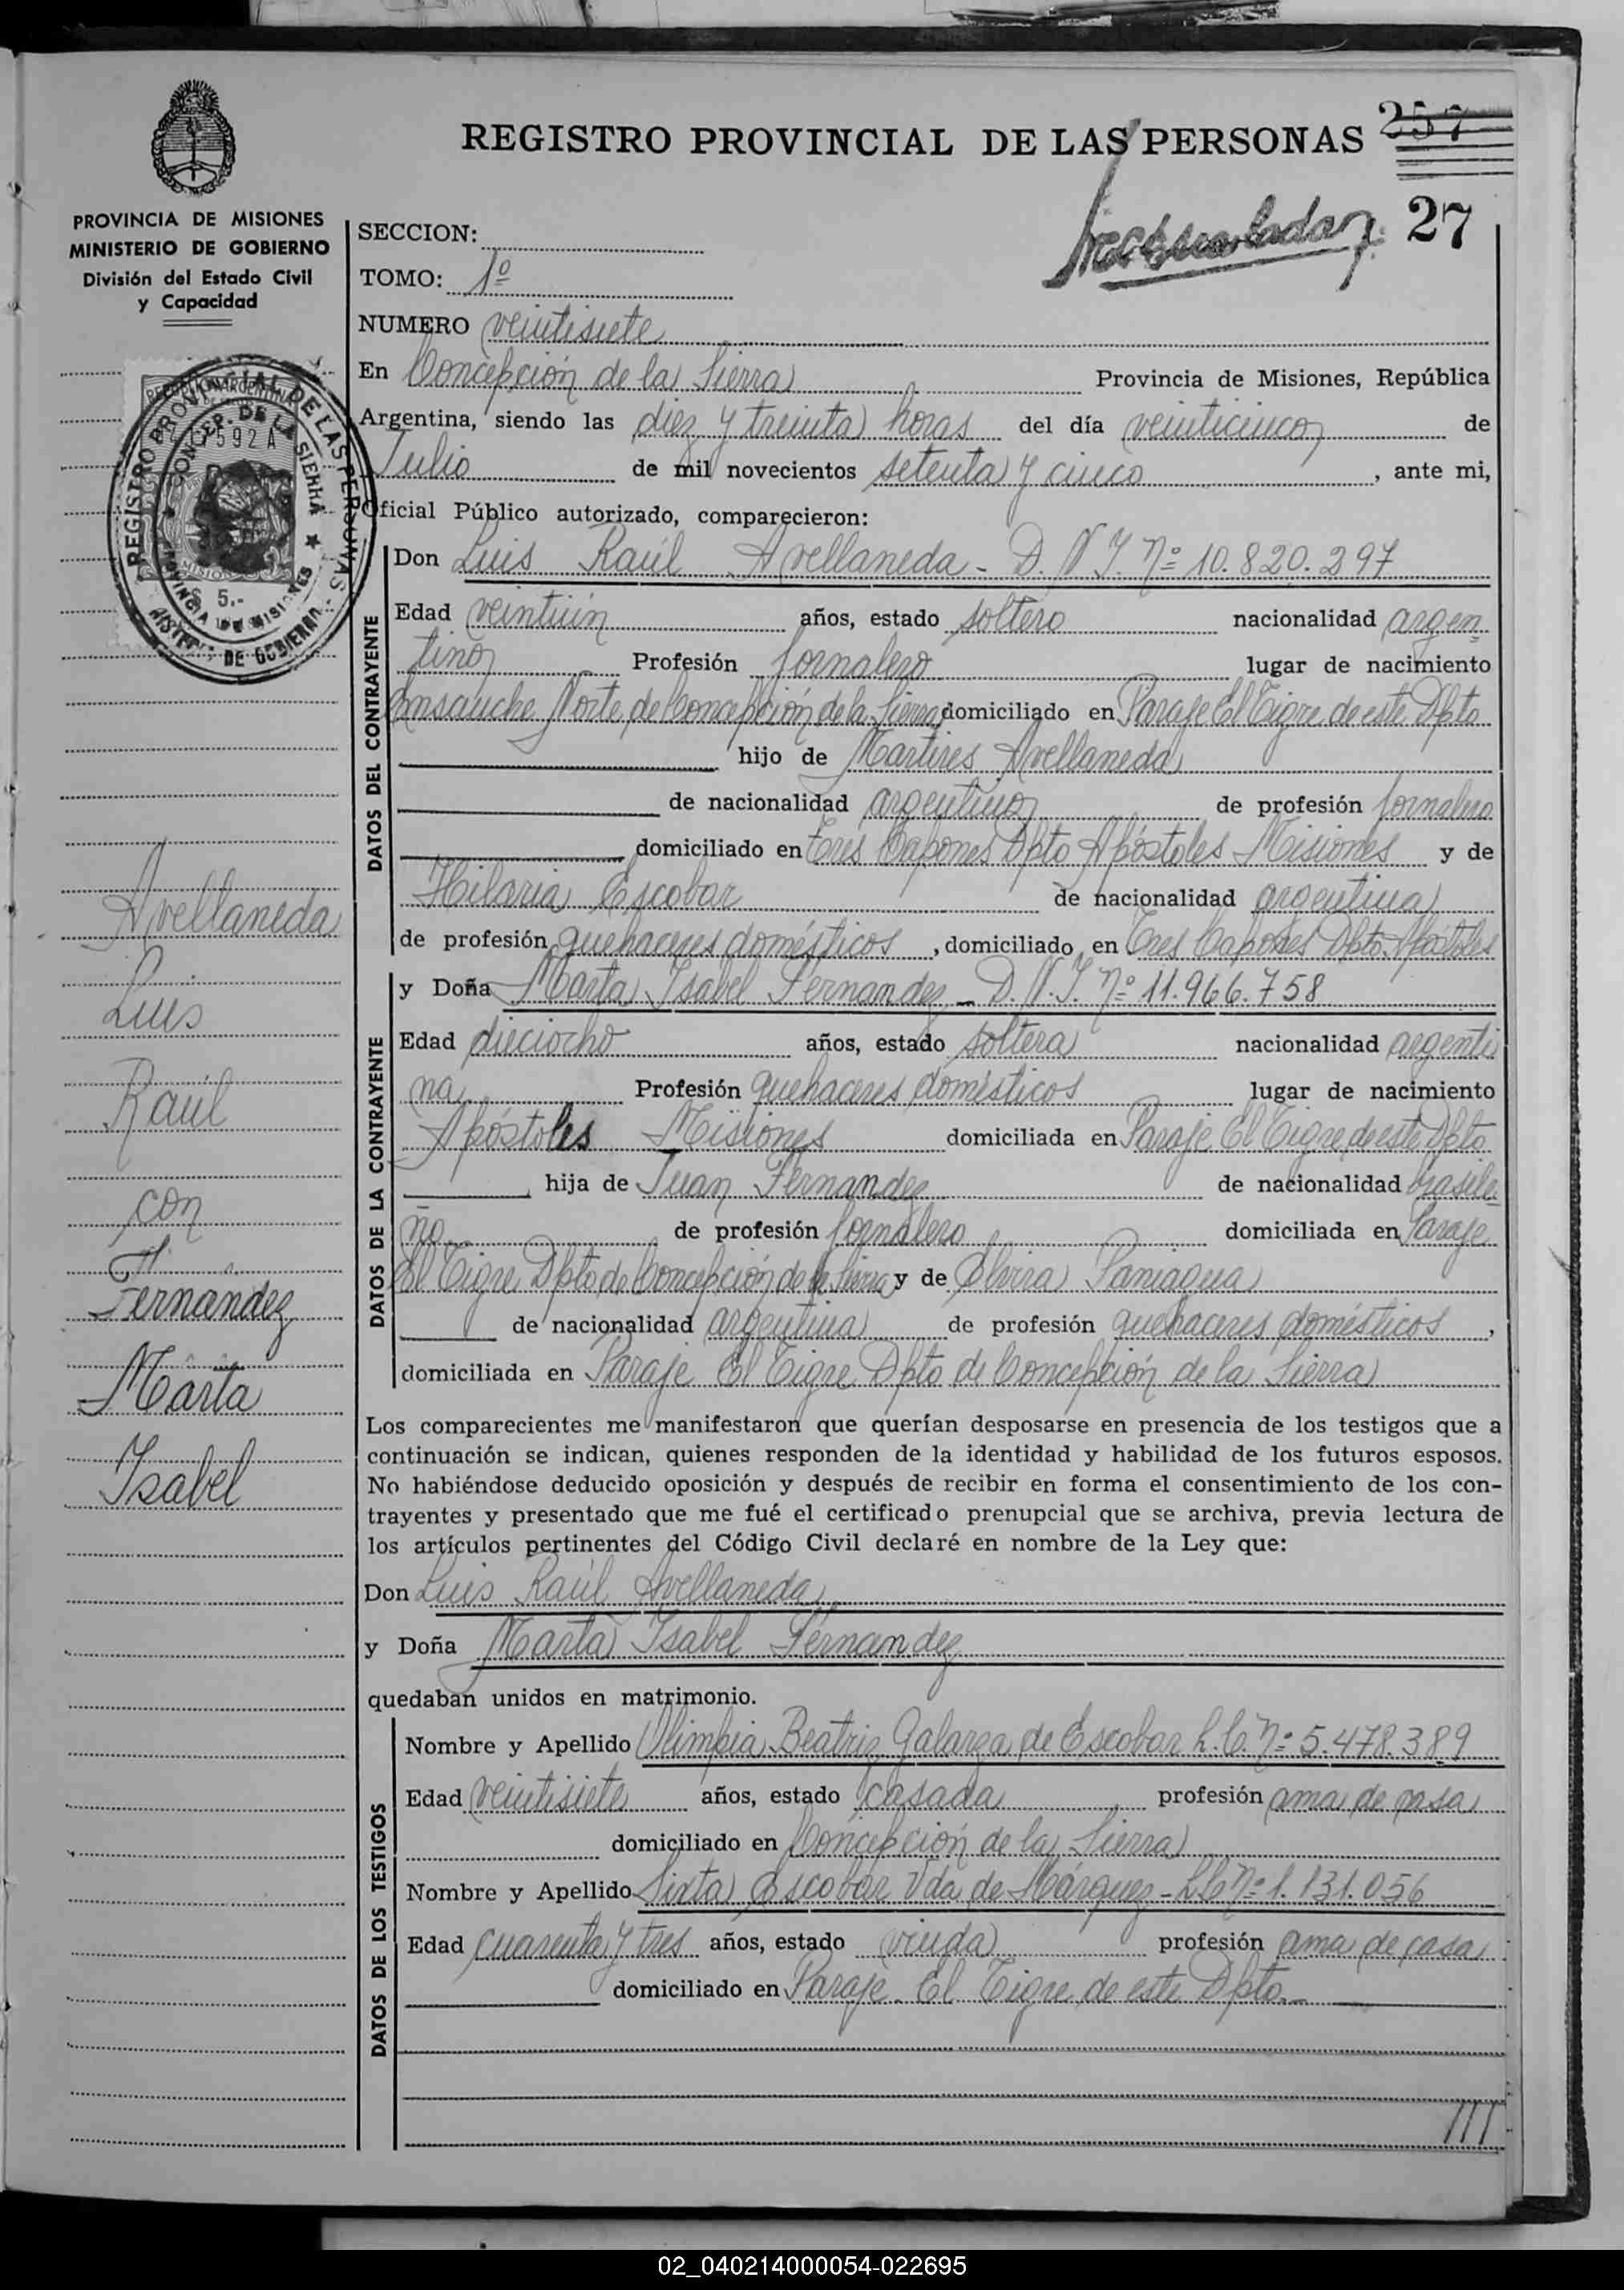 REGISTRO PROVINCIAL DE LAS PERSONAS
257
27
PROVINCIA DE MISIONES
MINISTERIO DE GOBIERNO
División del Estado Civil
y Capacidad
SECCION:
TOMO: 1º
NUMERO veintisiete
En Concepción de la Sierra Provincia de Misiones, República
Argentina, siendo las diez y treinta horas del día veinticinco de
Julio de mil novecientos setenta y cinco, ante mi,
Oficial Público autorizado, comparecieron:
DATOS DEL CONTRAYENTE
Don Luis Raúl Avellaneda - D.N.I. Nº 10.820.297
Edad veintiún años, estado soltero nacionalidad argen
tino Profesión Jornalero lugar de nacimiento
Ensanche Norte de Concepción de la Sierra domiciliado en Paraje El Tigre de este Dpto
hijo de Martires Avellaneda
de nacionalidad argentino de profesión Jornalero
domiciliado en Tres Capones Dpto Apóstoles Misiones y de
Hilaria Escobar de nacionalidad argentina
de profesión quehaceres domésticos, domiciliado en Tres Capones Dpto. Apóstoles
DATOS DE LA CONTRAYENTE
y Doña Marta Isabel Fernandez - D.N.I. Nº 11.966.758
Edad dieciocho años, estado soltera nacionalidad argenti
na Profesión quehaceres domésticos lugar de nacimiento
Apóstoles Misiones domiciliada en Paraje El Tigre de este Dpto
hija de Juan Fernandez de nacionalidad brasile
ño de profesión Jornalero domiciliada en Paraje
El Tigre Dpto de Concepción de la Sierra y de Elvira Paniagua
de nacionalidad argentina de profesión quehaceres domésticos,
domiciliada en Paraje El Tigre Dpto de Concepción de la Sierra
Los comparecientes me manifestaron que querían desposarse en presencia de los testigos que a
continuación se indican, quienes responden de la identidad y habilidad de los futuros esposos.
No habiéndose deducido oposición y después de recibir en forma el consentimiento de los con-
trayentes y presentado que me fué el certificado prenupcial que se archiva, previa lectura de
los artículos pertinentes del Código Civil declaré en nombre de la Ley que:
Don Luis Raúl Avellaneda
y Doña Marta Isabel Fernandez
quedaban unidos en matrimonio.
DATOS DE LOS TESTIGOS
Nombre y Apellido Olimpia Beatriz Galarza de Escobar L.C. Nº 5.478.389
Edad veintisiete años, estado casada profesión ama de casa
domiciliado en Concepción de la Sierra
Nombre y Apellido Sixta Escobar Vda de Márquez - L.C. Nº 1.131.056
Edad cuarenta y tres años, estado viuda profesión ama de casa
domiciliado en Paraje El Tigre de este Dpto.
///
REGISTRO PROVINCIAL DE LAS PERSONAS
CONCEP. DE LA SIERRA
PROVINCIA DE MISIONES
$ 5.-
Avellaneda
Luis
Raúl
con
Fernández
Marta
Isabel
02_040214000054-022695